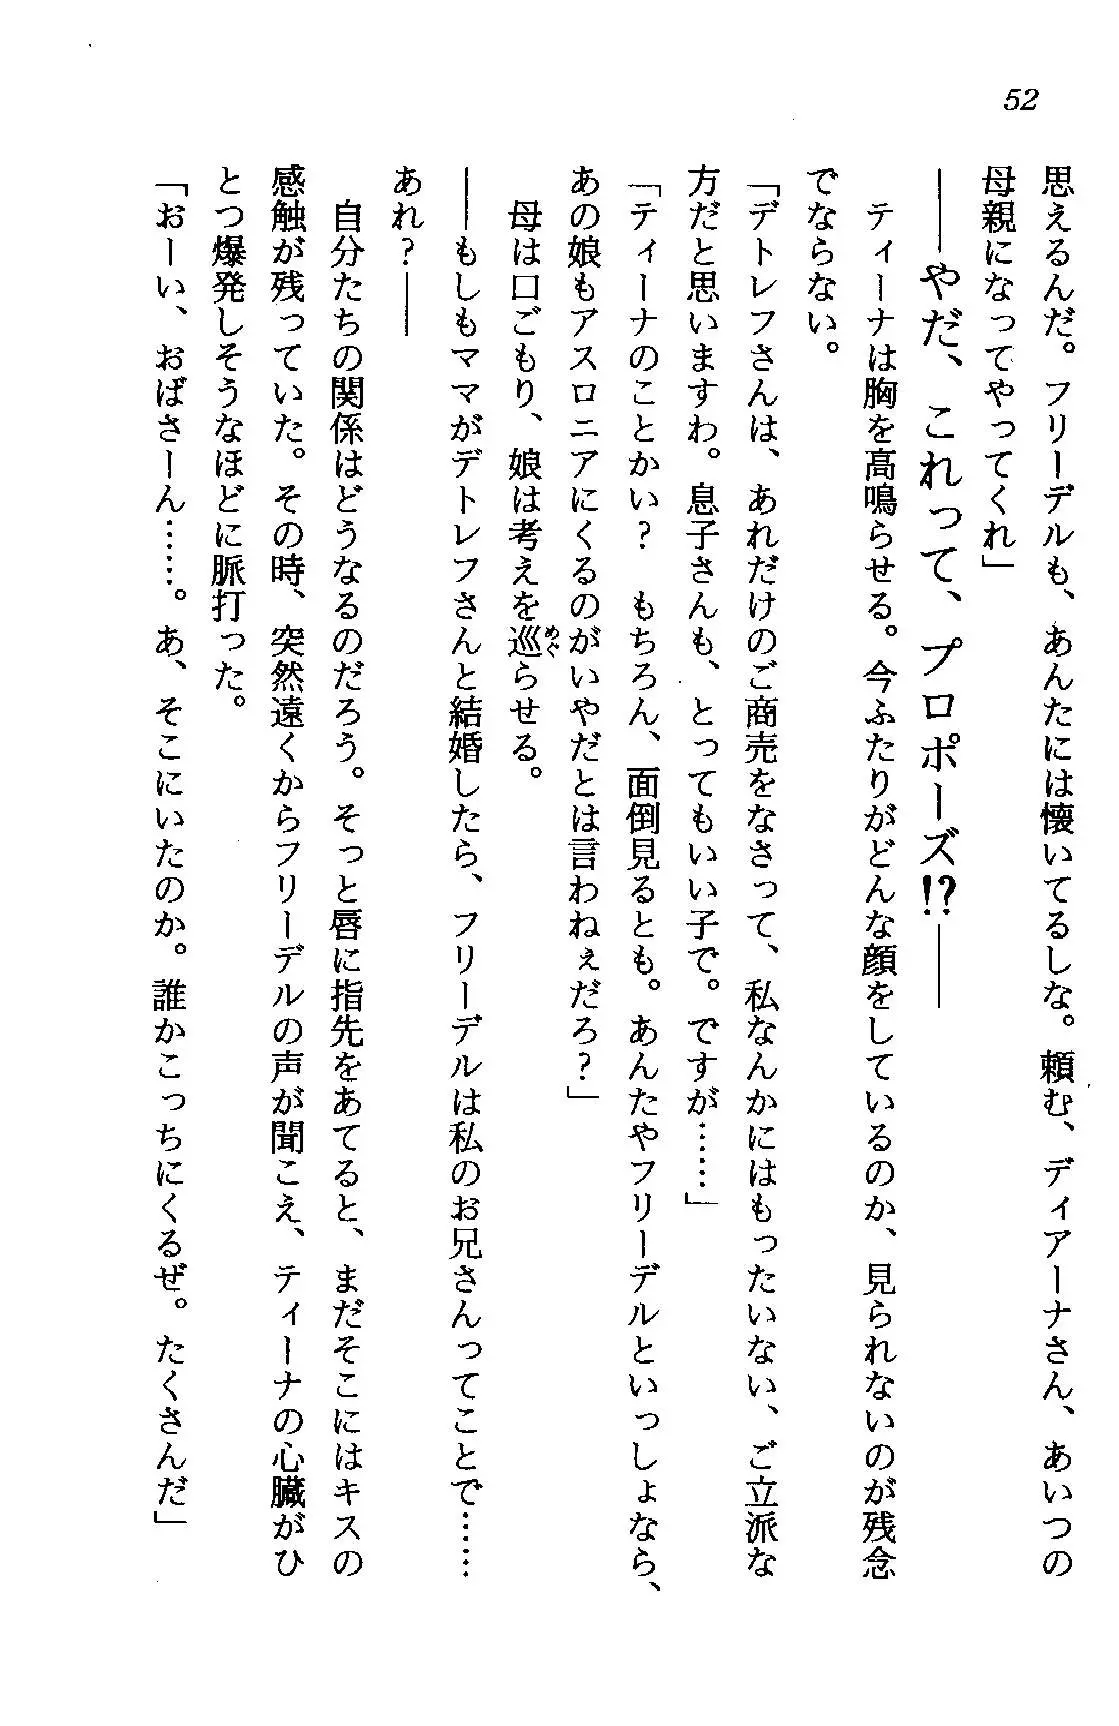 52
思えるんだ。フリーデルも、あんたには懐いてるしな。頼む、ディアーナさん、あいつの
母親になってやってくれ」
――やだ、これって、プロポーズ!?――
ティーナは胸を高鳴らせる。今ふたりがどんな顔をしているのか、見られないのが残念
でならない。
「デトレフさんは、あれだけのご商売をなさって、私なんかにはもったいない、ご立派な
方だと思いますわ。息子さんも、とってもいい子で。ですが……」
「ティーナのことかい？　もちろん、面倒見るとも。あんたやフリーデルといっしょなら、
あの娘もアスロニアにくるのがいやだとは言わねぇだろ？」
母は口ごもり、娘は考えを巡らせる。
めぐ
――もしもママがデトレフさんと結婚したら、フリーデルは私のお兄さんってことで……
あれ？――
自分たちの関係はどうなるのだろう。そっと唇に指先をあてると、まだそこにはキスの
感触が残っていた。その時、突然遠くからフリーデルの声が聞こえ、ティーナの心臓がひ
とつ爆発しそうなほどに脈打った。
「おーい、おばさーん……。あ、そこにいたのか。誰かこっちにくるぜ。たくさんだ」